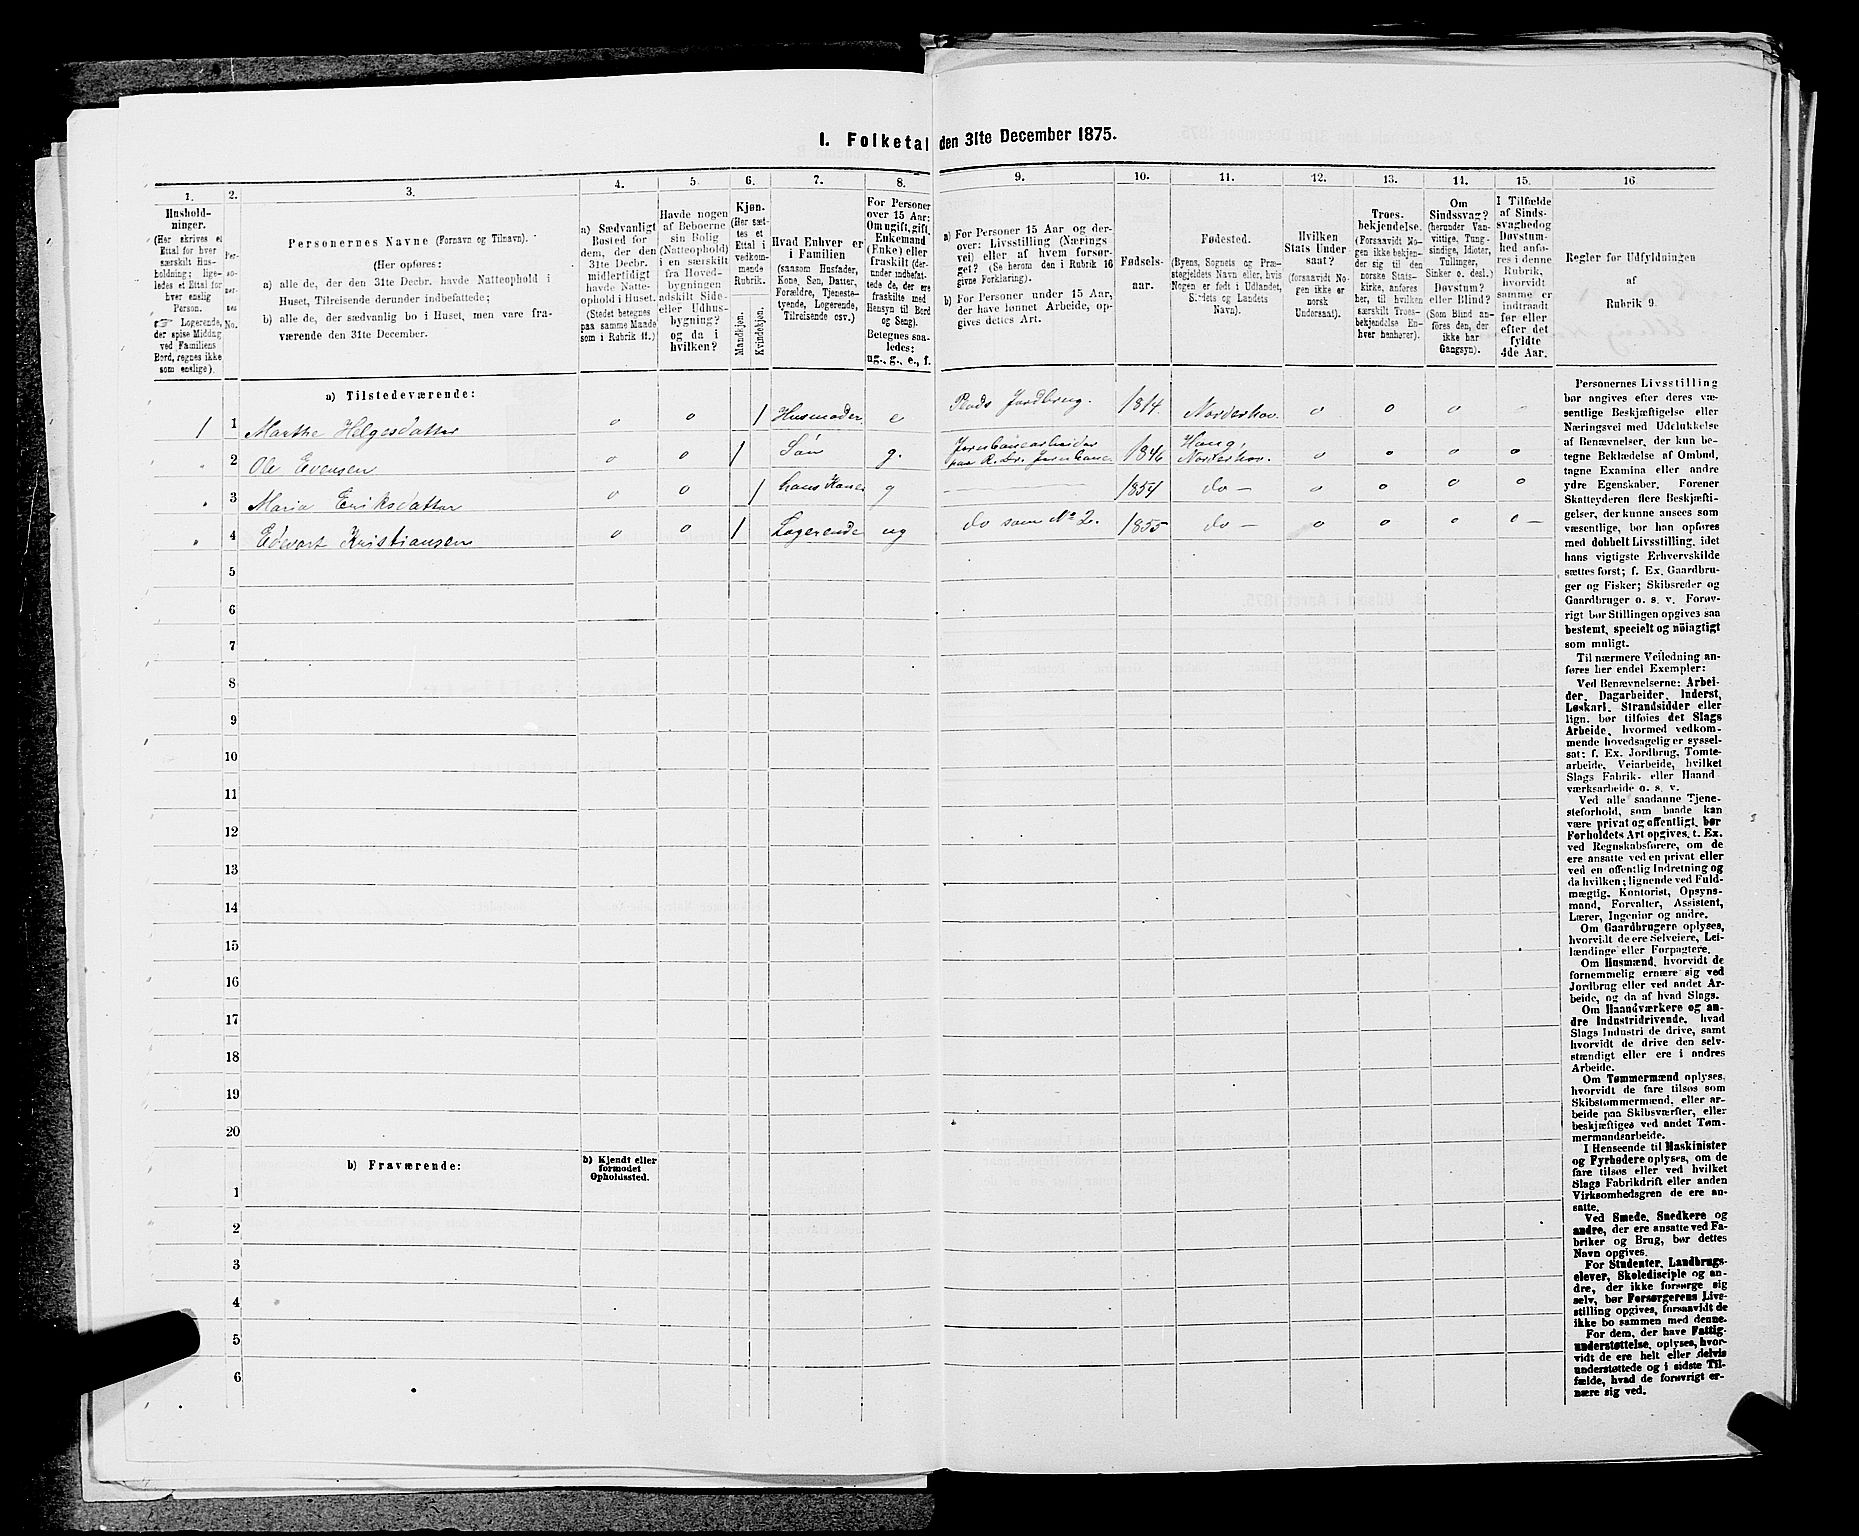 I. Folketal den 31te December 1875.
1.
2.
3.
4.
5.
6.
7.
8.
9.
10.
11.
12.
13.
14.
15.
16
Hushold-
ninger.
(Her skrives et
Ettal for hver
særskilt Hus-
holdning; lige-
ledes et Ettal for
hver enslig
Person.
☞ Logerende,
der spise Middag
ved Familiens
Bord, regnes ikke
som enslige).
Per-
so-
ner-
nes
No.
Personernes Navne (Fornavn og Tilnavn).
(Her opføres:
a) alle de, der den 31te Decbr. havde Natteophold i
Huset, Tilreisende derunder indbefattede;
b) alle de, der sædvanlig bo i Huset, men vare fra-
værende den 31te December.
a) Sædvanligt
Bosted for
dem, der den
31te Decbr.
midlertidigt
havde Natte-
ophold i Huset.
(Stedet betegnes
paa samme Maade
som i Rubrik 11.)
Havde nogen
af Beboerne
sin Bolig
(Natteophold)
i en særskilt
fra Hoved-
bygningen
adskilt Side-
eller Udhus-
bygning?
og da i
hvilken?
Kjøn.
(Her sæt-
tes et
Ettal i
vedkom-
mende
Rubrik.
Mandkjøn.
Kvindekjøn.
Hvad Enhver er
i Familien
(saasom Husfader,
Kone, Søn, Datter,
Forældre, Tjeneste-
tyende, Logerende,
Tilreisende osv.)
For Personer
over 15 Aar:
Om ugift, gift,
Enkemand
(Enke) eller
fraskilt (der-
under indbefat-
tede de, der ere
fraskilte med
Hensyn til Bord
og Seng).
Betegnes saa-
ledes:
ug., g., e., f.
a) For Personer 15 Aar og der-
over: Livsstilling (Nærings-
vei) eller af hvem forsør-
get? (Se herom den i Rubrik 16
givne Forklaring).
b) For Personer under 15 Aar,
der have lønnet Arbeide, op-
gives dettes Art.
Fødsels-
aar.
Fødested.
(Byens, Sognets og Præ-
stegjeldets Navn eller, hvis
Nogen er født i Udlandet,
Stedets og Landets
Navn).
Hvilken
Stats Under
saat?
(forsaavidt No-
gen ikke er
norsk
Undersaat).
Troes-
bekjendelse.
(Forsaavidt No-
gen ikke bekjen-
der sig til den
norske Stats-
kirke, anføres
her, til hvilken
særskilt Troes-
bekjendelse En-
hver henhører).
Om
Sindssvag?
(herunder Van-
vittige, Tung-
sindige, Idioter,
Tullinger,
Sinker o. desl.)
Døvstum?
eller Blind?
(Som Blind an-
føres den, der
ikke har
Gangsyn).
I Tilfælde
af Sinds-
svaghed og
Døvstum-
hed anfø-
res i denne
Rubrik,
hvorvidt
samme er
indtraadt
før eller
efter det
fyldte
4de Aar.
Regler for Udfyldningen
af
Rubrik 9.
a) Tilstedeværende:
1 1 Marthe Helgesdatter o o 1 Husmoder e Plads Jordbrug. 1814 Norderhov. o o o o
" 2 Ole Evensen o o 1 Søn g. Jernbanearbeider paa R. Dr. Jernbane 1846 Haug, Norderhov. o o o o
" 3 Maria Eriksdatter o o 1 hans Kone g — 1854 do — o o o o
" 4 Edevart Kristiansen o o 1 Logerende ug do som No 2. 1855 do — o o o o —
5
6
7
8
9
10
11
12
13
14
15
16
17
18
19
20
b) Fraværende:
b) Kjendt eller
formodet
Opholdssted.
1
2
3
4
5
6
Personernes Livsstilling
bør angives efter deres væ-
sentlige Beskjæftigelse eller
Næringsvei med Udelukkelse
af Benævnelser, der kun be-
tegne Beklædelse af Ombud,
tagne Examina eller andre
ydre Egenskaber. Forener
Skatteyderen flere Beskjæfti-
gelser, der kunne ansees som
væsentlige, bør han opføres
med dobbelt Livsstilling, idet
hans vigtigste Erhvervskilde
sættes først; f. Ex. Gaardbru-
ger og Fisker; Skibsreder og
Gaardbruger o. s. v. Forøv-
rigt bør Stillingen opgives saa
bestemt, specielt og nöiagtigt
som muligt.
Til nærmere Veiledning an-
føres her endel Exempler:
Ved Benævnelserne: Arbei-
der, Dagarbeider, Inderst,
Løskarl, Strandsidder eller
lign. bør tilføies det Slags
Arbeide, hvormed vedkom-
mende hovedsagelig er syssel-
sat; f. Ex. Jordbrug, Tomte-
arbeide, Veiarbeide, hvilket
Slags Fabrik- eller Haand
værksarbeide o. s. v.
Ved alle saadanne Tjene-
steforhold, som baade kan
være privat og offentligt, bør
Forholdets Art opgives, t. Ex.
ved Regnskabsførere, om de
ere ansatte ved en privat eller
ved en offentlig Indretning og
da hvilken; lignende ved Fuld-
mægtig, Kontorist, Opsyns-
mand, Forvalter, Assistent,
Lærer, Ingeniør og andre.
Om Gaardbrugere oplyses,
hvorvidt de ere Selveiere, Lei-
lændinge eller Forpagtere.
Om Husmænd, hvorvidt de
fornemmelig ernære sig ved
Jordbrug eller ved andet Ar-
beide, og da af hvad Slags.
Om Haandværkere og an-
dre Industridrivende, hvad
Slags Industri de drive, samt
hvorvidt de drive den selv-
stændigt eller ere i andres
Arbeide.
Om Tømmermænd oplyses,
hvorvidt de fare tilsøs som
Skibstømmermænd, eller ar-
beide paa Skibsværfter, eller
beskjæftiges ved andet Tøm-
mermandsarbeide.
I Henseende til Maskinister
og Fyrbødere oplyses, om de
fare tilsøs eller ved hvilket
Slags Fabrikdrift eller anden
Virksomhedsgren de ere an-
satte.
Ved Smede, Snedkere og
andre, der ere ansatte ved Fa-
briker og Brug, bør dettes
Navn opgives.
For Studenter, Landbrugs-
elever, Skoledisciple og an-
dre, der ikke forsørge sig
selv, bør Forsørgerens Livs-
stilling opgives, forsaavidt de
ikke bo sammen med denne.
For dem, der have Fattig-
understøttelse, oplyses, hvor-
vidt de ere helt eller delvis
understøttede og i sidste Til-
fælde, hvad de forøvrigt er-
nære sig ved.